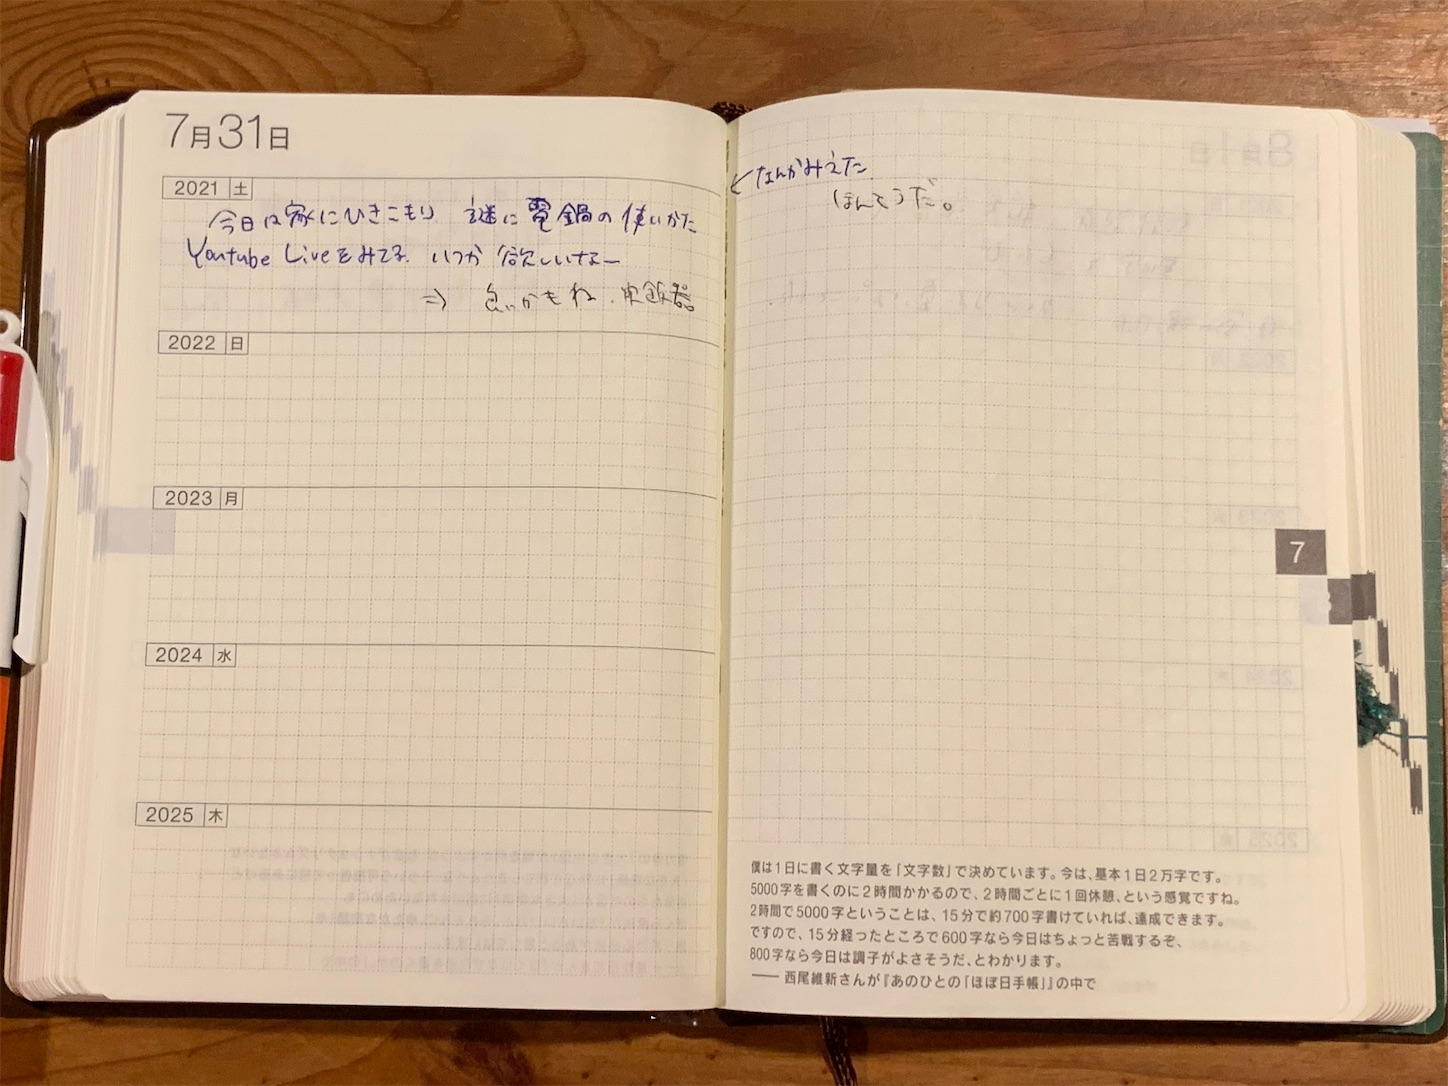 7月31日
2021 土
今日は家にひきこもり 謎に電鍋の使いかた
Youtube Liveをみてる. いつか欲しいなー
⇒ 良いかもね.炊飯器
2022 日
2023 月
2024 水
2025 木
←なんかみえた.
ほんとうだ。
7
8
僕は1日に書く文字量を「文字数」で決めています。今は、基本1日2万字です。
5000字を書くのに2時間かかるので、2時間ごとに1回休憩、という感覚ですね。
2時間で5000字ということは、15分で約700字書けていれば、達成できます。
ですので、15分経ったところで600字なら今日はちょっと苦戦するぞ、
800字なら今日は調子がよさそうだ、とわかります。
── 西尾維新さんが『あのひとの「ほぼ日手帳」』の中で